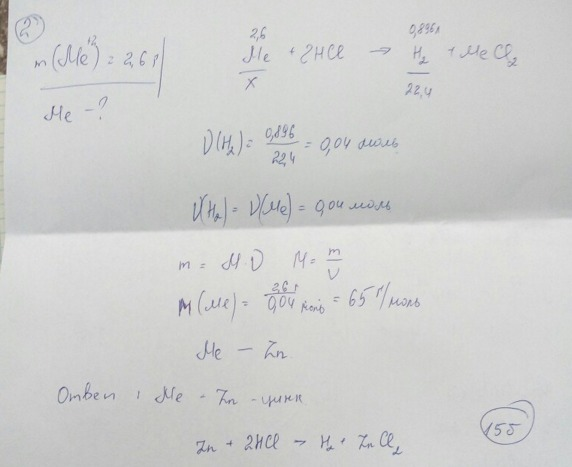 2
m(Me⁺²) = 2,6 г
Me - ?
2,6 0,896 л
Me + 2HCl → H₂ + MeCl₂
x 22,4
ν(H₂) = 0,896 / 22,4 = 0,04 моль
ν(H₂) = ν(Me) = 0,04 моль
m = M·ν M = m / ν
M(Me) = 2,6 г / 0,04 моль = 65 г/моль
Me - Zn
Ответ: Me - Zn - цинк
Zn + 2HCl → H₂ + ZnCl₂
15б